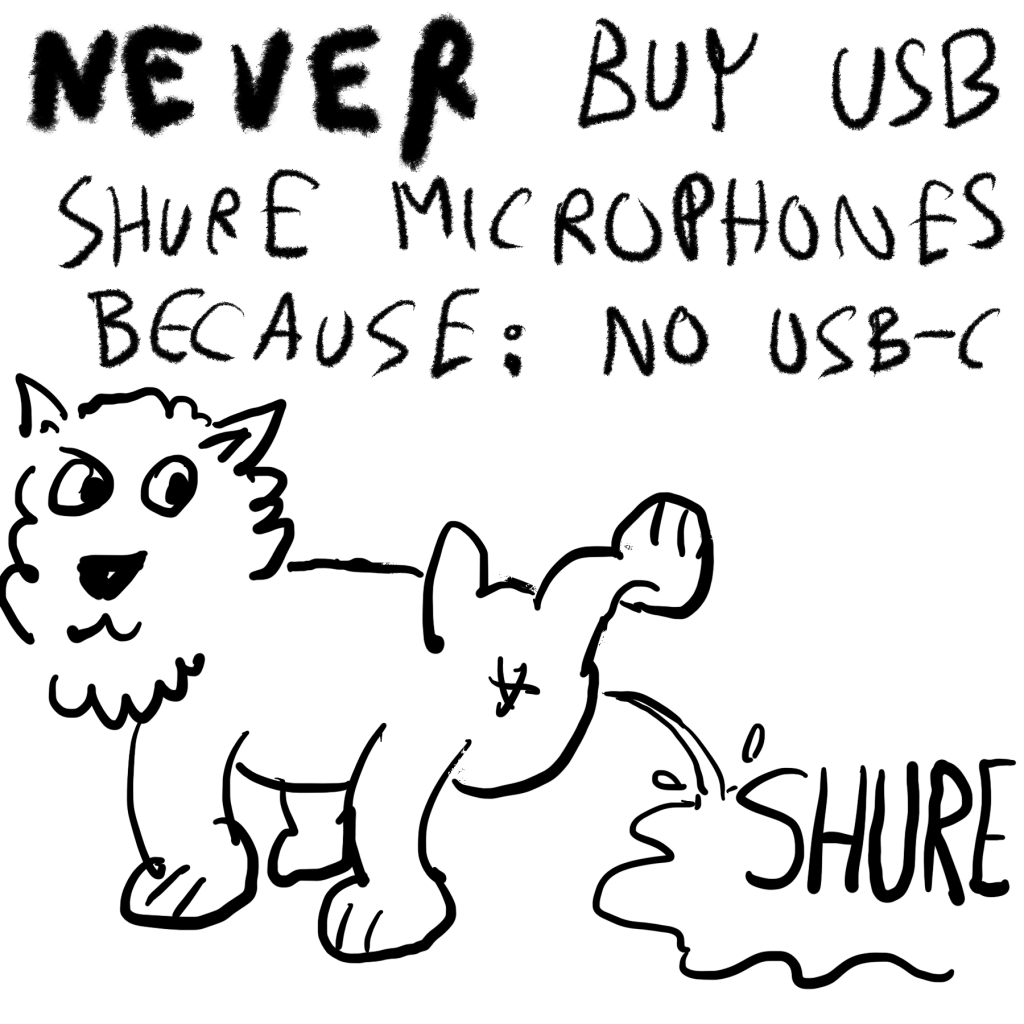 NEVER BUY USB
SHURE MICROPHONES
BECAUSE: NO USB-C
SHURE